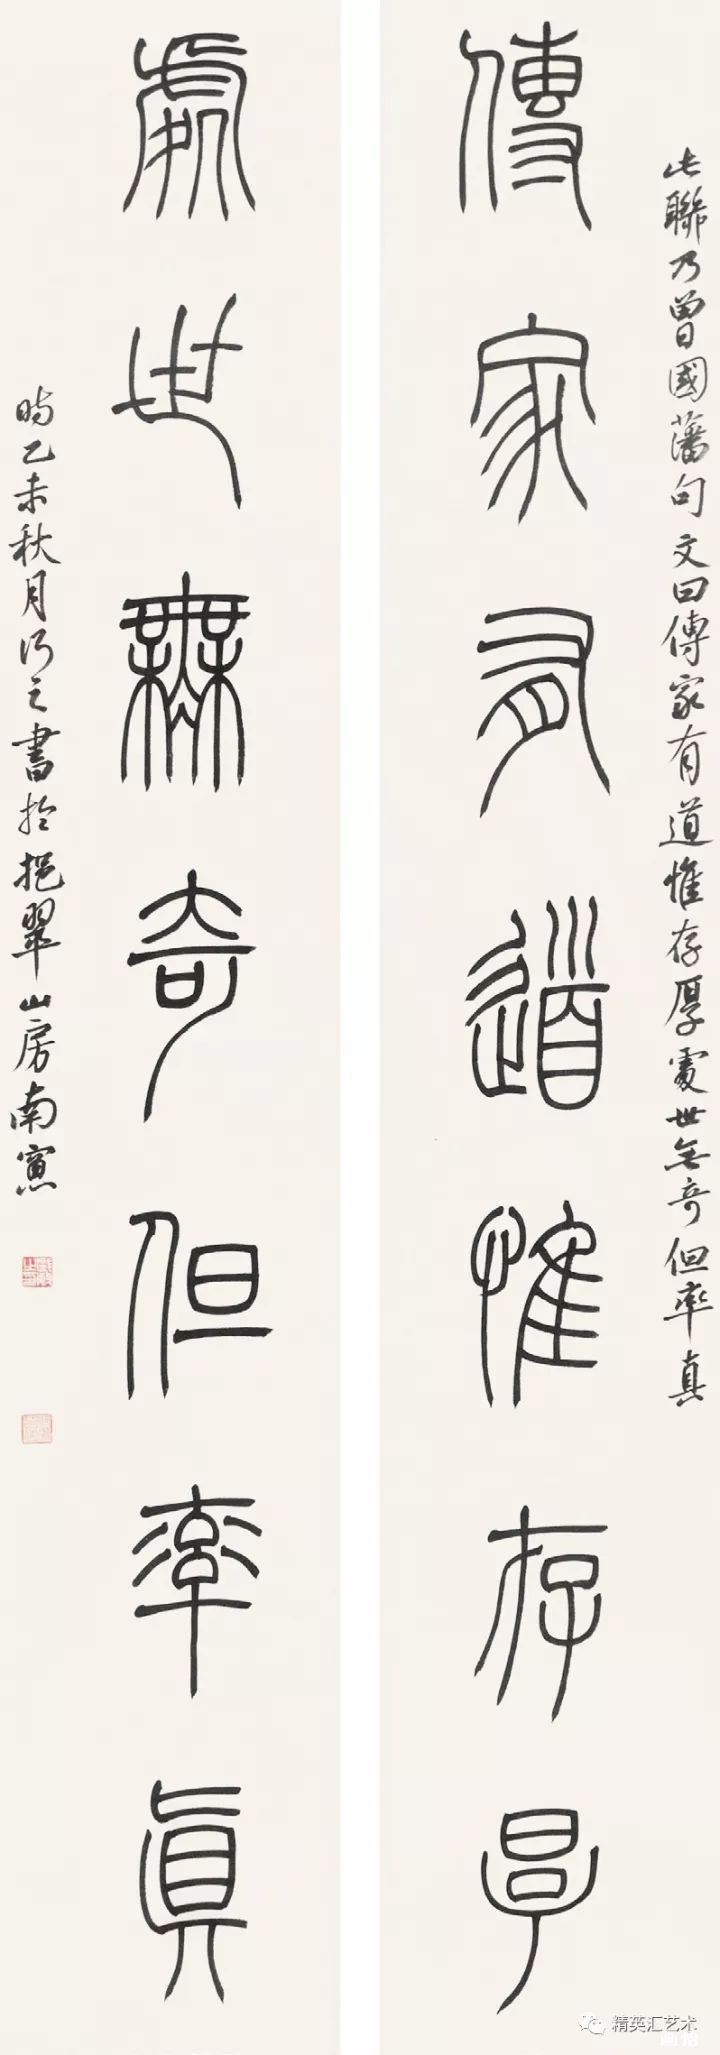 此聯乃曾國藩句文曰傳家有道惟存厚處世無奇但率真
傳家有道惟存厚
處世無奇但率真
時乙未秋月行之書於挹翠山房南窗
精英汇艺术